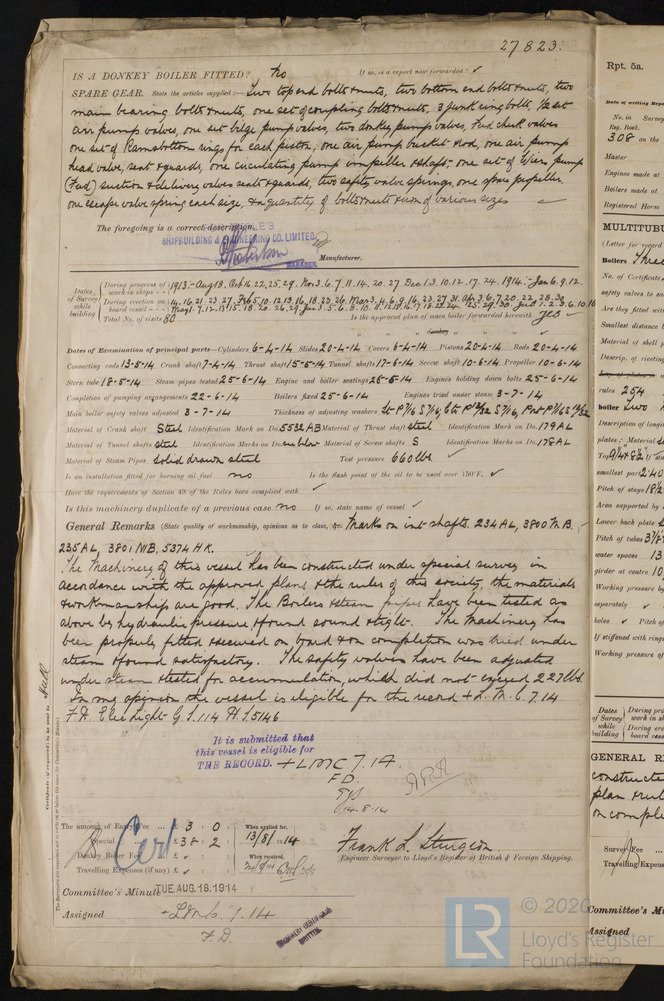 27823.
IS A DONKEY BOILER FITTED? No If so, is a report now forwarded? ✓
SPARE GEAR. State the articles supplied:— Two top end bolts & nuts, two bottom end bolts & nuts, two
main bearing bolts & nuts, one set of coupling bolts & nuts, 3 junk ring bolts, 1/2 set
air pump valves, one set bilge pump valves, two donkey pump valves, Feed check valves
one set of Ramsbottom rings for each piston, one air pump bucket & rod, one air pump
head valve, seat & guards, one circulating pump impeller & shaft, one set of Weirs pump
(Feed) suction & delivery valves seats & guards, two safety valve springs, one spare propeller.
one escape valve spring each size, & a quantity of bolts & nuts & iron of various sizes
The foregoing is a correct description,
SHIPBUILDING & ENGINEERING CO. LIMITED,
Manufacturer.
MANAGER
Dates of Survey while building
During progress of work in shops - - 1913 - Aug 18. Oct 16. 22. 25. 29. Nov 3. 6. 7. 11. 14. 20. 27. Dec 1. 3. 10. 12. 17. 24. 1914. Jan 6. 9. 12.
During erection on board vessel - - -
Total No. of visits 80
Is the approved plan of main boiler forwarded herewith Yes ✓
" " " donkey " " "
Dates of Examination of principal parts—Cylinders 6-4-14 Slides 20-4-14 Covers 6-4-14 Pistons 20-4-14 Rods 20-4-14
Connecting rods 13-5-14 Crank shaft 7-4-14 Thrust shaft 15-5-14 Tunnel shafts 17-6-14 Screw shaft 10-6-14 Propeller 10-6-14
Stern tube 18-5-14 Steam pipes tested 25-6-14 Engine and boiler seatings 25-5-14 Engines holding down bolts 25-6-14
Completion of pumping arrangements 22-6-14 Boilers fixed 25-6-14 Engines tried under steam 3-7-14
Main boiler safety valves adjusted 3-7-14 Thickness of adjusting washers
Material of Crank shaft Steel Identification Mark on Do. 5532AB Material of Thrust shaft Steel Identification Mark on Do. 179AL
Material of Tunnel shafts Steel Identification Marks on Do. see below Material of Screw shafts S Identification Marks on Do. 178AL
Material of Steam Pipes Solid drawn steel Test pressure 660 lbs ✓
Is an installation fitted for burning oil fuel no Is the flash point of the oil to be used over 150°F. ✓
Have the requirements of Section 49 of the Rules been complied with ✓
Is this machinery duplicate of a previous case no If so, state name of vessel ✓
General Remarks (State quality of workmanship, opinions as to class, &c. Marks on int. shafts. 234AL, 3800MB,
235AL, 3801MB, 5374HK.
The machinery of this vessel has been constructed under special survey in
accordance with the approved plans & the rules of this society, the materials
& workmanship are good. The Boilers & steam pipes have been tested as
above by hydraulic pressure & found sound & tight. The machinery has
been properly fitted & secured on board & on completion was tried under
steam & found satisfactory. The safety valves have been adjusted
under steam & tested for accumulation, which did not exceed 227 lbs.
In my opinion the vessel is eligible for the record + L.M.C. 7.14
F.D. Elec Light
It is submitted that
this vessel is eligible for
THE RECORD. + LMC 7.14.
FD.
14.8.14
Certificate (if required) to be sent to Hull
The amount of Entry Fee ... £ 3 : 0 : When applied for,
Special ... £ 38 : 2 : 13/8/1914
Donkey Boiler Fee ... £ ✓ When received,
Travelling Expenses (if any) £ ✓
Cert
Frank L. Sturgeon.
Engineer Surveyor to Lloyd's Register of British & Foreign Shipping.
Committee's Minute TUE. AUG. 18. 1914
Assigned + LMC 7.14
F.D.
MACHINERY CERTIFICATE
WRITTEN.
Rpt. 5a.
Date of writing Rep
No. in Survey
Reg. Book.
308 on the
Master
Engines made at
Boilers made at
Registered Horse
MULTITUBU
(Letter for record
Boilers Three
No. of Certificate
safety valves to ea
Are they fitted wit
Smallest distance b
Material of shell p
Descrip. of riveting
rules 254
boiler Two
Description of longit
plates :
smallest part 2.40
Pitch of stays 18 1/2
Area supported by
Lower back plate
Pitch of tubes 3 1/8
water spaces 13
girder at centre 10
Working pressure by
separately ✓
holes ✓ Pitch of
If stiffened with rings
Working pressure of
Dates of Survey while building
During pro
work in sh
During ere
board vess
GENERAL R
constructe
plan & rul
on comple
Survey Fee
Travelling Expense
Committee's Mi
Assigned
LR
© 2020
Lloyd's Register
Foundation